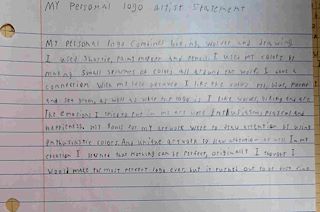 My Personal logo Artist Statement
My Personal logo combines biking, waves and drawing
I used Sharpie, paint marker and pencil. I used my colors by
making small splashes of colors all around the work. I have a
connection with my logo because I like the colors red, blue, purple
and sea green, as well as what the logo is. I like waves, biking and art
The emotions I tried to put in my art were Enthusiasm, Projected and
happiness. My goals for my artwork were to draw attention by using
enthusiastic colors. And unique artwork to draw attention as well. In my
creation I learned that nothing can be perfect, originally I thought I
would make the most perfect logo ever, but it turned out to be just fine